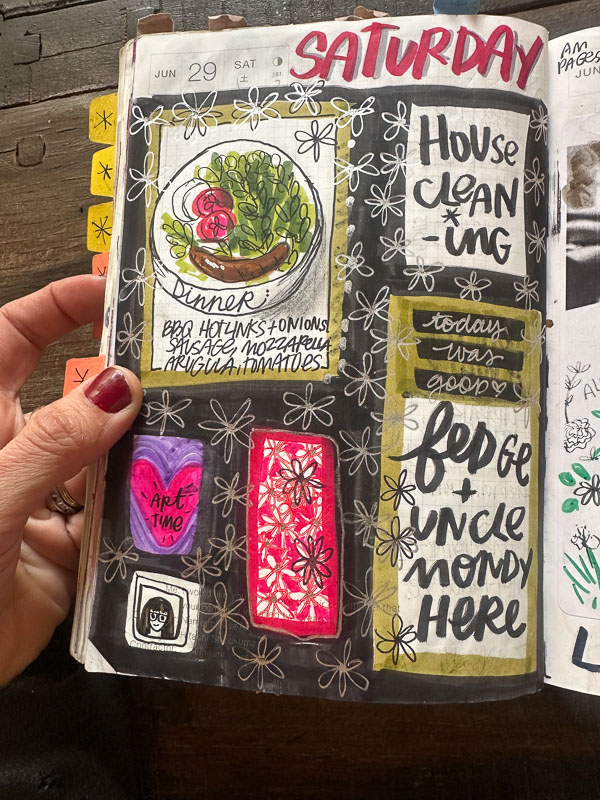 SATURDAY
JUN 29 SAT
土
HOUSE
CLEAN
-ING
Dinner:
BBQ HOTLINKS + ONIONS
SAUSAGE, MOZZARELLA
ARUGULA, TOMATOES
today
was
good
ART
TIME
FEDGE
+
UNCLE
MONDY
HERE
AM
PAGES
JUN